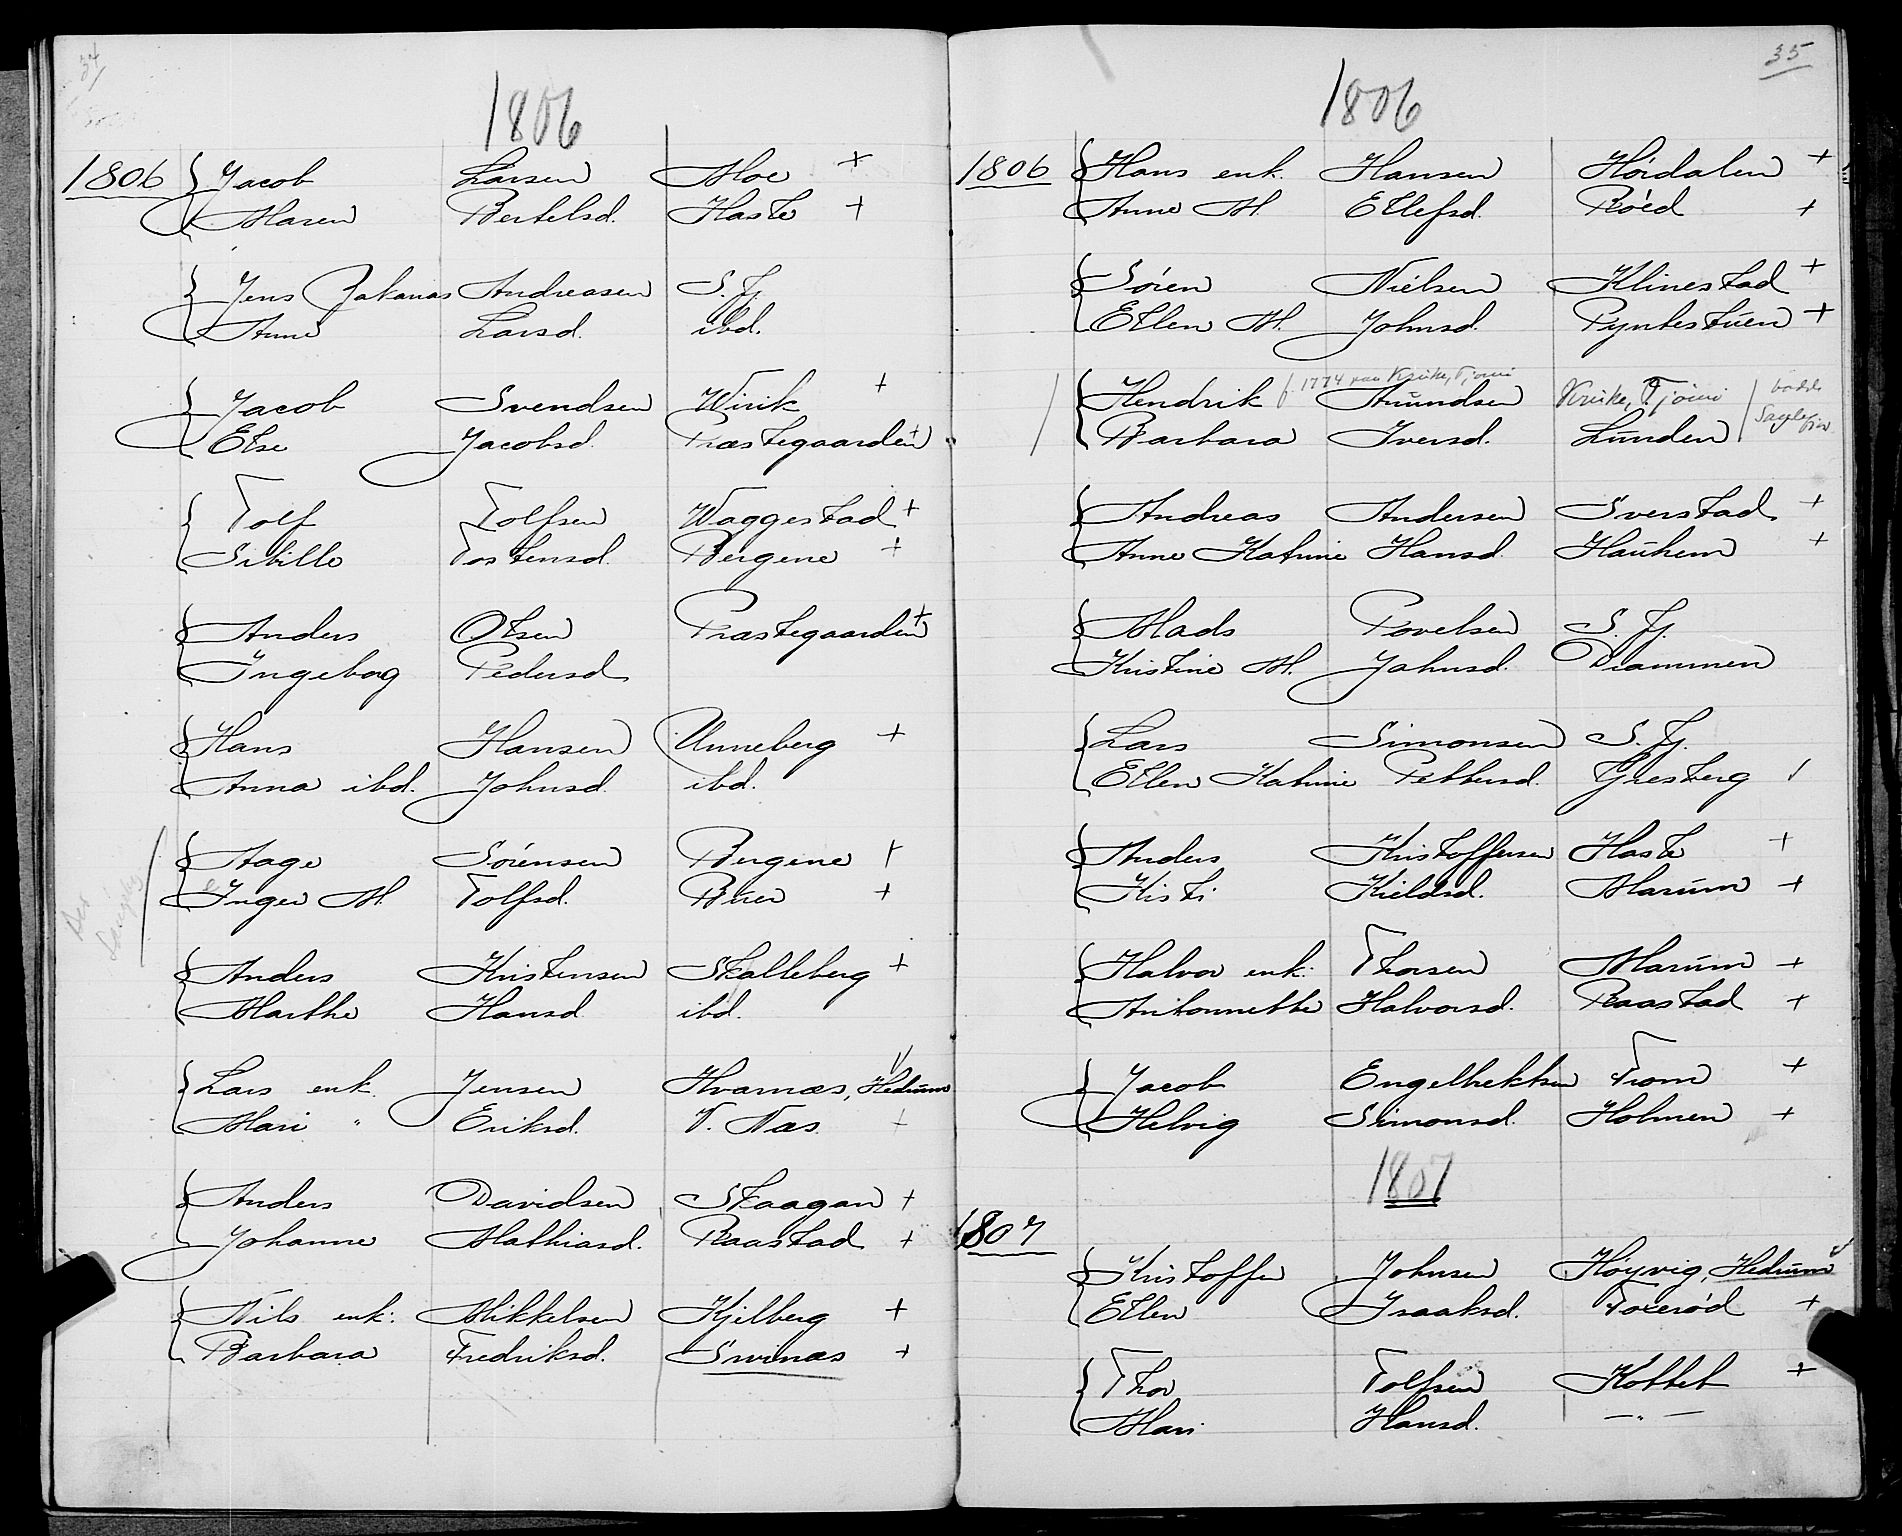 34
1806
1806 Jacob Larsen Moe +
Maren Bertelsd. Haste +
Jens Zakarias Andreasen S. Fj.
Anne Larsd. ibd.
Jacob Svendsen Wirik +
Else Jacobsd. Præstegaarden +
Tolf Tolfsen Waggestad +
Sibille Tostensd. Bergene +
Anders Olsen Præstegaarden +
Ingeborg Pedersd.
Hans Hansen Unneberg +
Anna ibd. Johnsd. ibd.
Aage Sørensen Bergene +
Inger M. Tolfsd. Buer +
Anders Kristensen Skalleberg +
Marthe Hansd. ibd.
Lars enk. Jensen Hvarnæs, Hedrum
Mari " Eriksd. V. Næs +
Anders Davidsen Skaagan +
Johanne Mathiasd. Raastad +
Nils enk: Mikkelsen Kjelberg +
Barbara Fredriksd. Svinæs +
35
1806
1806 Hans enk. Hansen Hørdalen +
Anne M. Ellefsd. Røed +
Søren Nielsen Klinestad +
Ellen M. Johnsd. Pyntestuen +
f. 1774 paa Kruke, Tjømø
Hendrik Amundsen Kruke, Tjømø
Barbara Iversd. Lunden
Andreas Andersen Sverstad +
Anne Katrine Hansd. Haukem +
Mads Povelsen S. Fj.
Kristine M. Jahnsd. Drammen
Lars Simonsen S. Fj.
Ellen Katrine Pettersd. Gresberg
Anders Kristoffersen Haste +
Kisti Kieldsd. Marum +
Halvor enk: Thorsen Marum +
Antonnette Halvorsd. Raastad +
Jacob Engelbrektsen From +
Helvig Simonsd. Holmen +
1807
1807
Kristoffer Johnsen Høyvig, Hedrum
Ellen Isaaksd. Foxerød +
Thor Tolfsen Kottet +
Mari Hansd. — " —